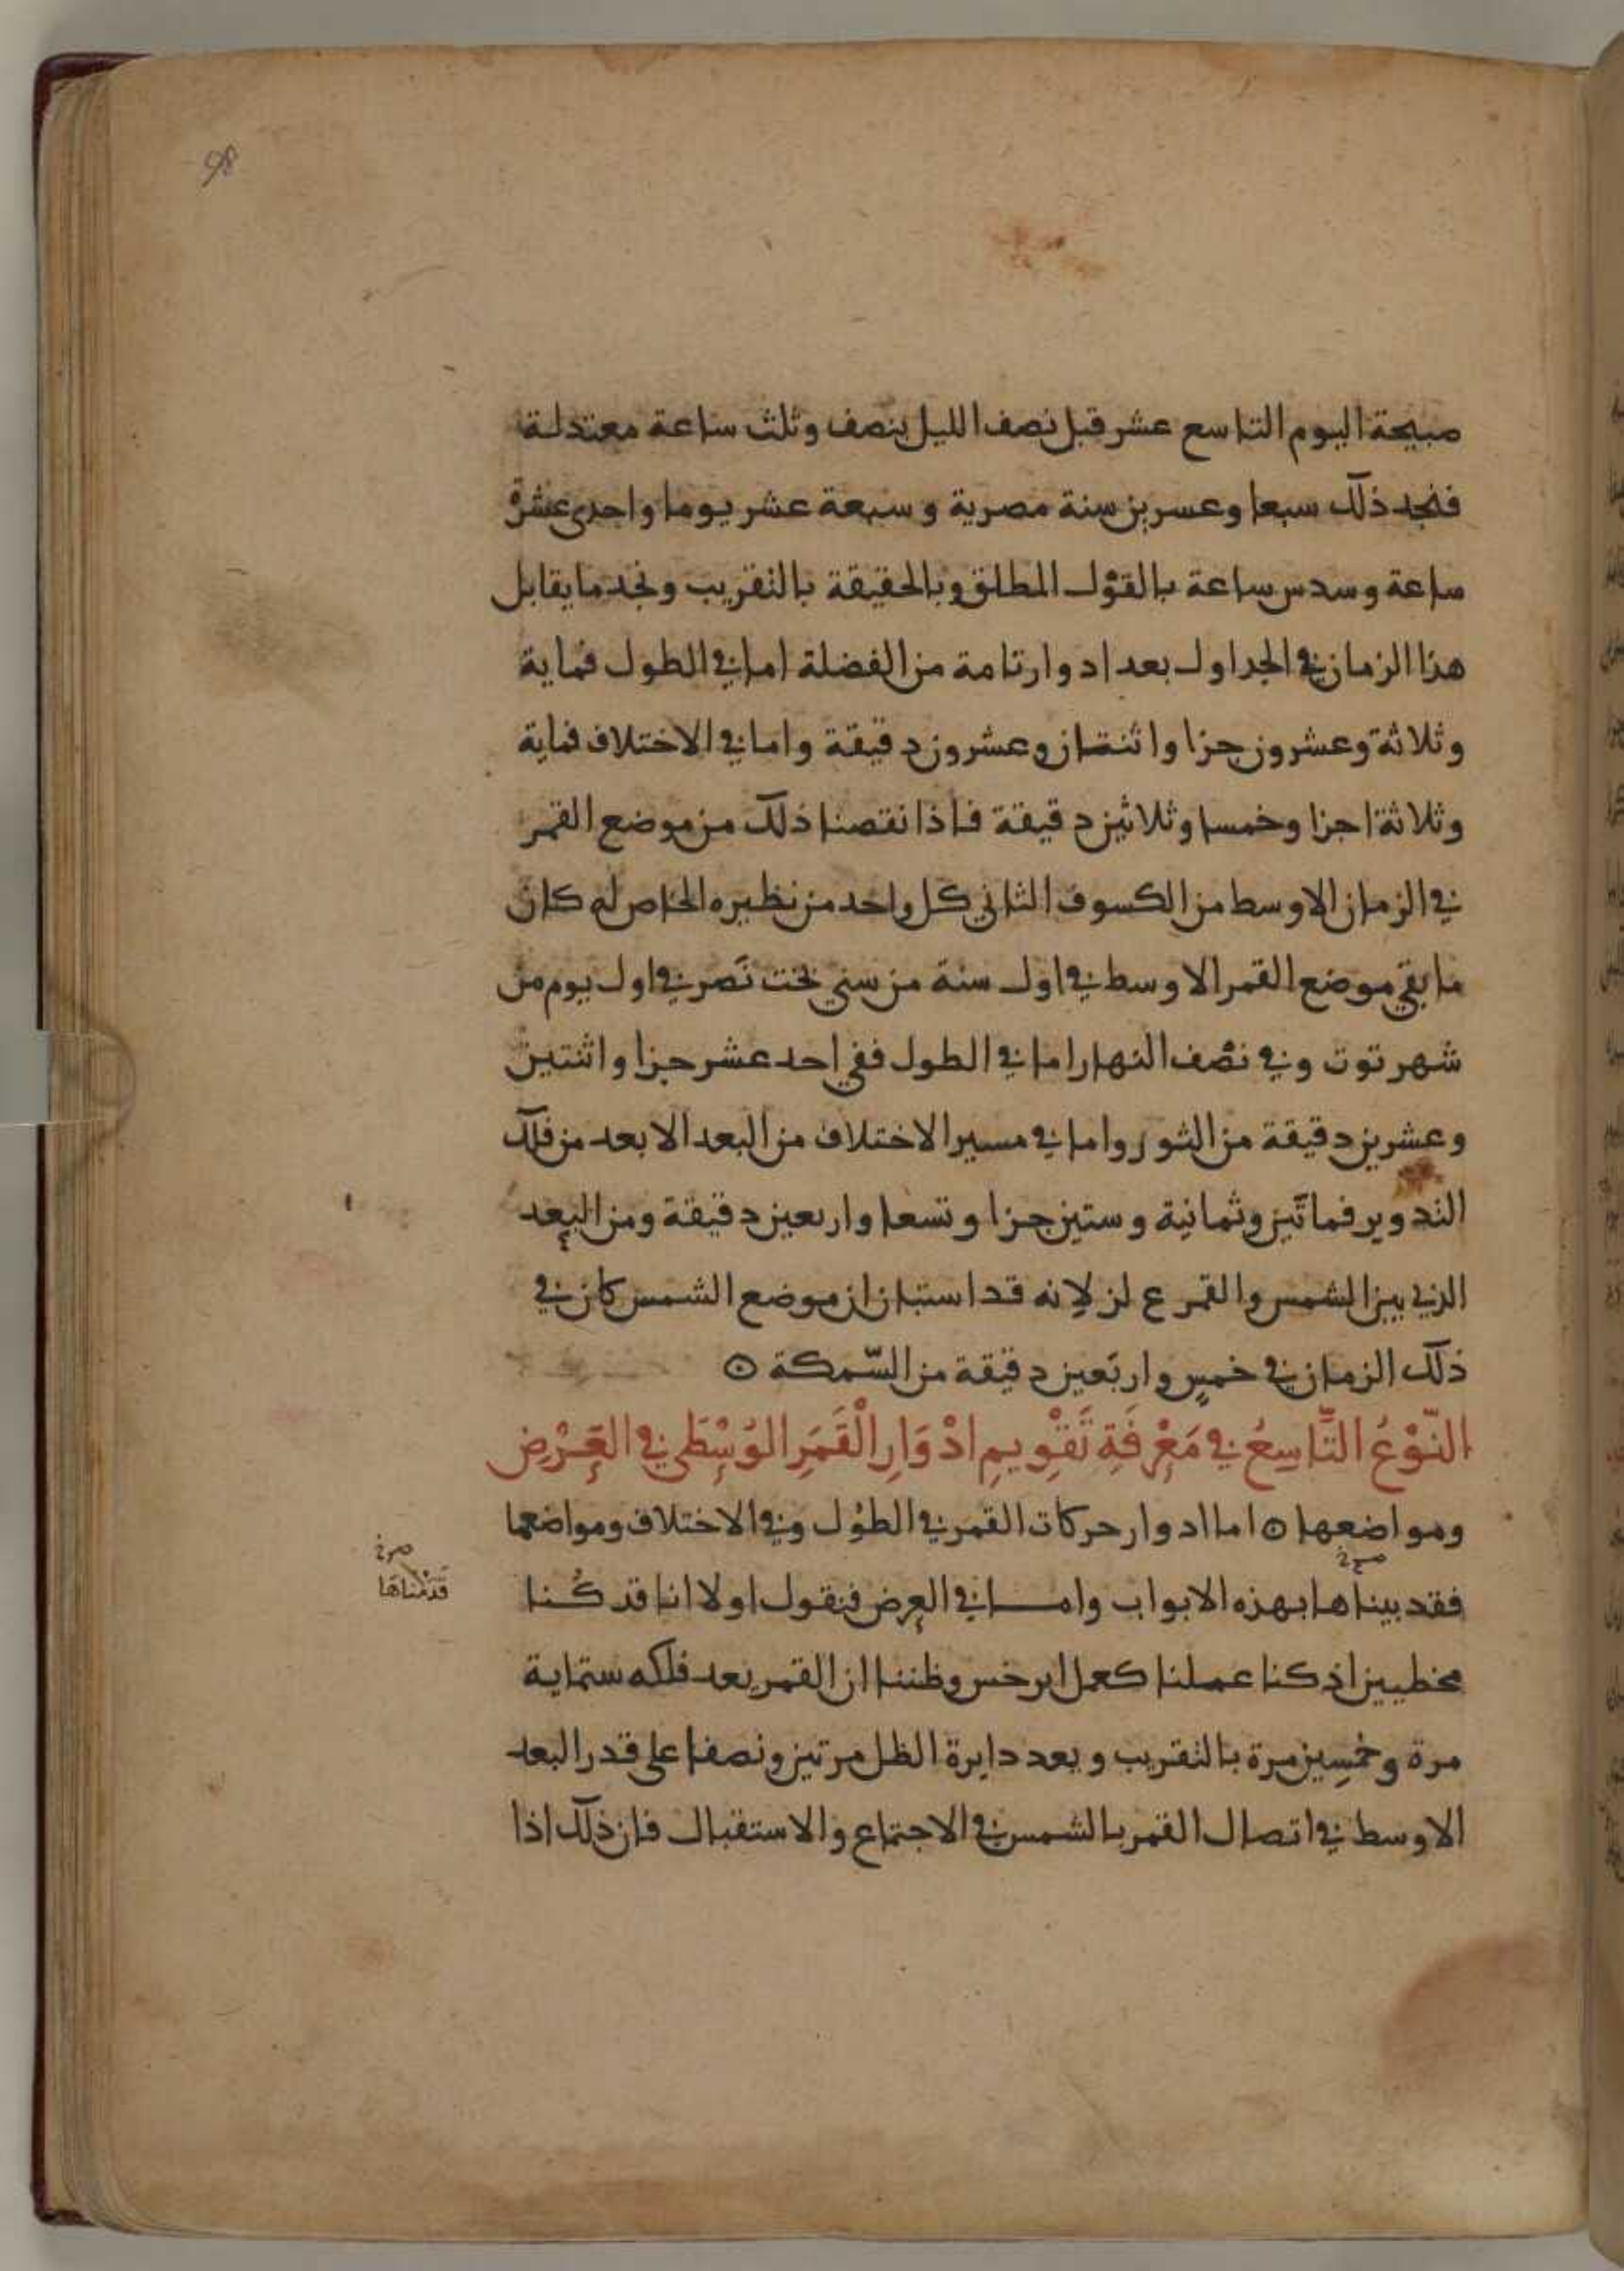 98
صبيحة اليوم التاسع عشر قبل نصف الليل بنصف وثلث ساعة معتدلة
فنجد ذلك سبعا وعسرين سنة مصرية وسبعة عشر يوما واحدى عشرة
ساعة وسدس ساعة بالقول المطلق وبالحقيقة بالتقريب ونجد ما يقابل
هذا الزمان في الجداول بعد ادوار تامة من الفضلة اما في الطول فماية
وثلاثة وعشرون جزا واثنتان وعشرون دقيقة واما في الاختلاف فماية
وثلاثة اجزا وخمسا وثلاثين دقيقة فاذا نقصنا ذلك من موضع القمر
في الزمان الاوسط من الكسوف الثاني كل واحد من نظيره الخاص له كان
ما بقي موضع القمر الاوسط في اول سنة من سني بخت نَصر في اول يوم من
شهر توت وفي نصف النهار اما في الطول ففي احد عشر جزا واثنتين
وعشرين دقيقة من الثور واما في مسير الاختلاف من البعد الابعد من فلك
التدوير فمائتين وثمانية وستين جزا وتسعا واربعين دقيقة ومن البعد
الذي بين الشمس والقمر ع لز لانه قد استبان ان موضع الشمس كان في
ذلك الزمان في خمسٍ واربَعين دقيقة من السّمكة ⊙
النّوْعُ التَّاسِعُ في مَعْرِفَةِ تَقْوِيمِ ادْوَارِ الْقَمَرِ الوُسْطَى في العَرْضِ
ومواضعها ⊙ اما ادوار حركات القمر في الطوُل وفي الاختلاف ومواضعها
فقد بيناها بهذه الابواب واما في العرض فنقول اولا انا قد كُنا
قدّمْناهَا
مخطيين اذ كنا عملنا كعمل ابرخس وظننا ان القمر يعد فلكه ستماية
مرة وخمسِين مرة بالتقريب ويعد دايرة الظل مرتين ونصفا على قدر البعد
الاوسط في اتصال القمر بالشمس في الاجتماع والاستقبال فان ذلك اذا